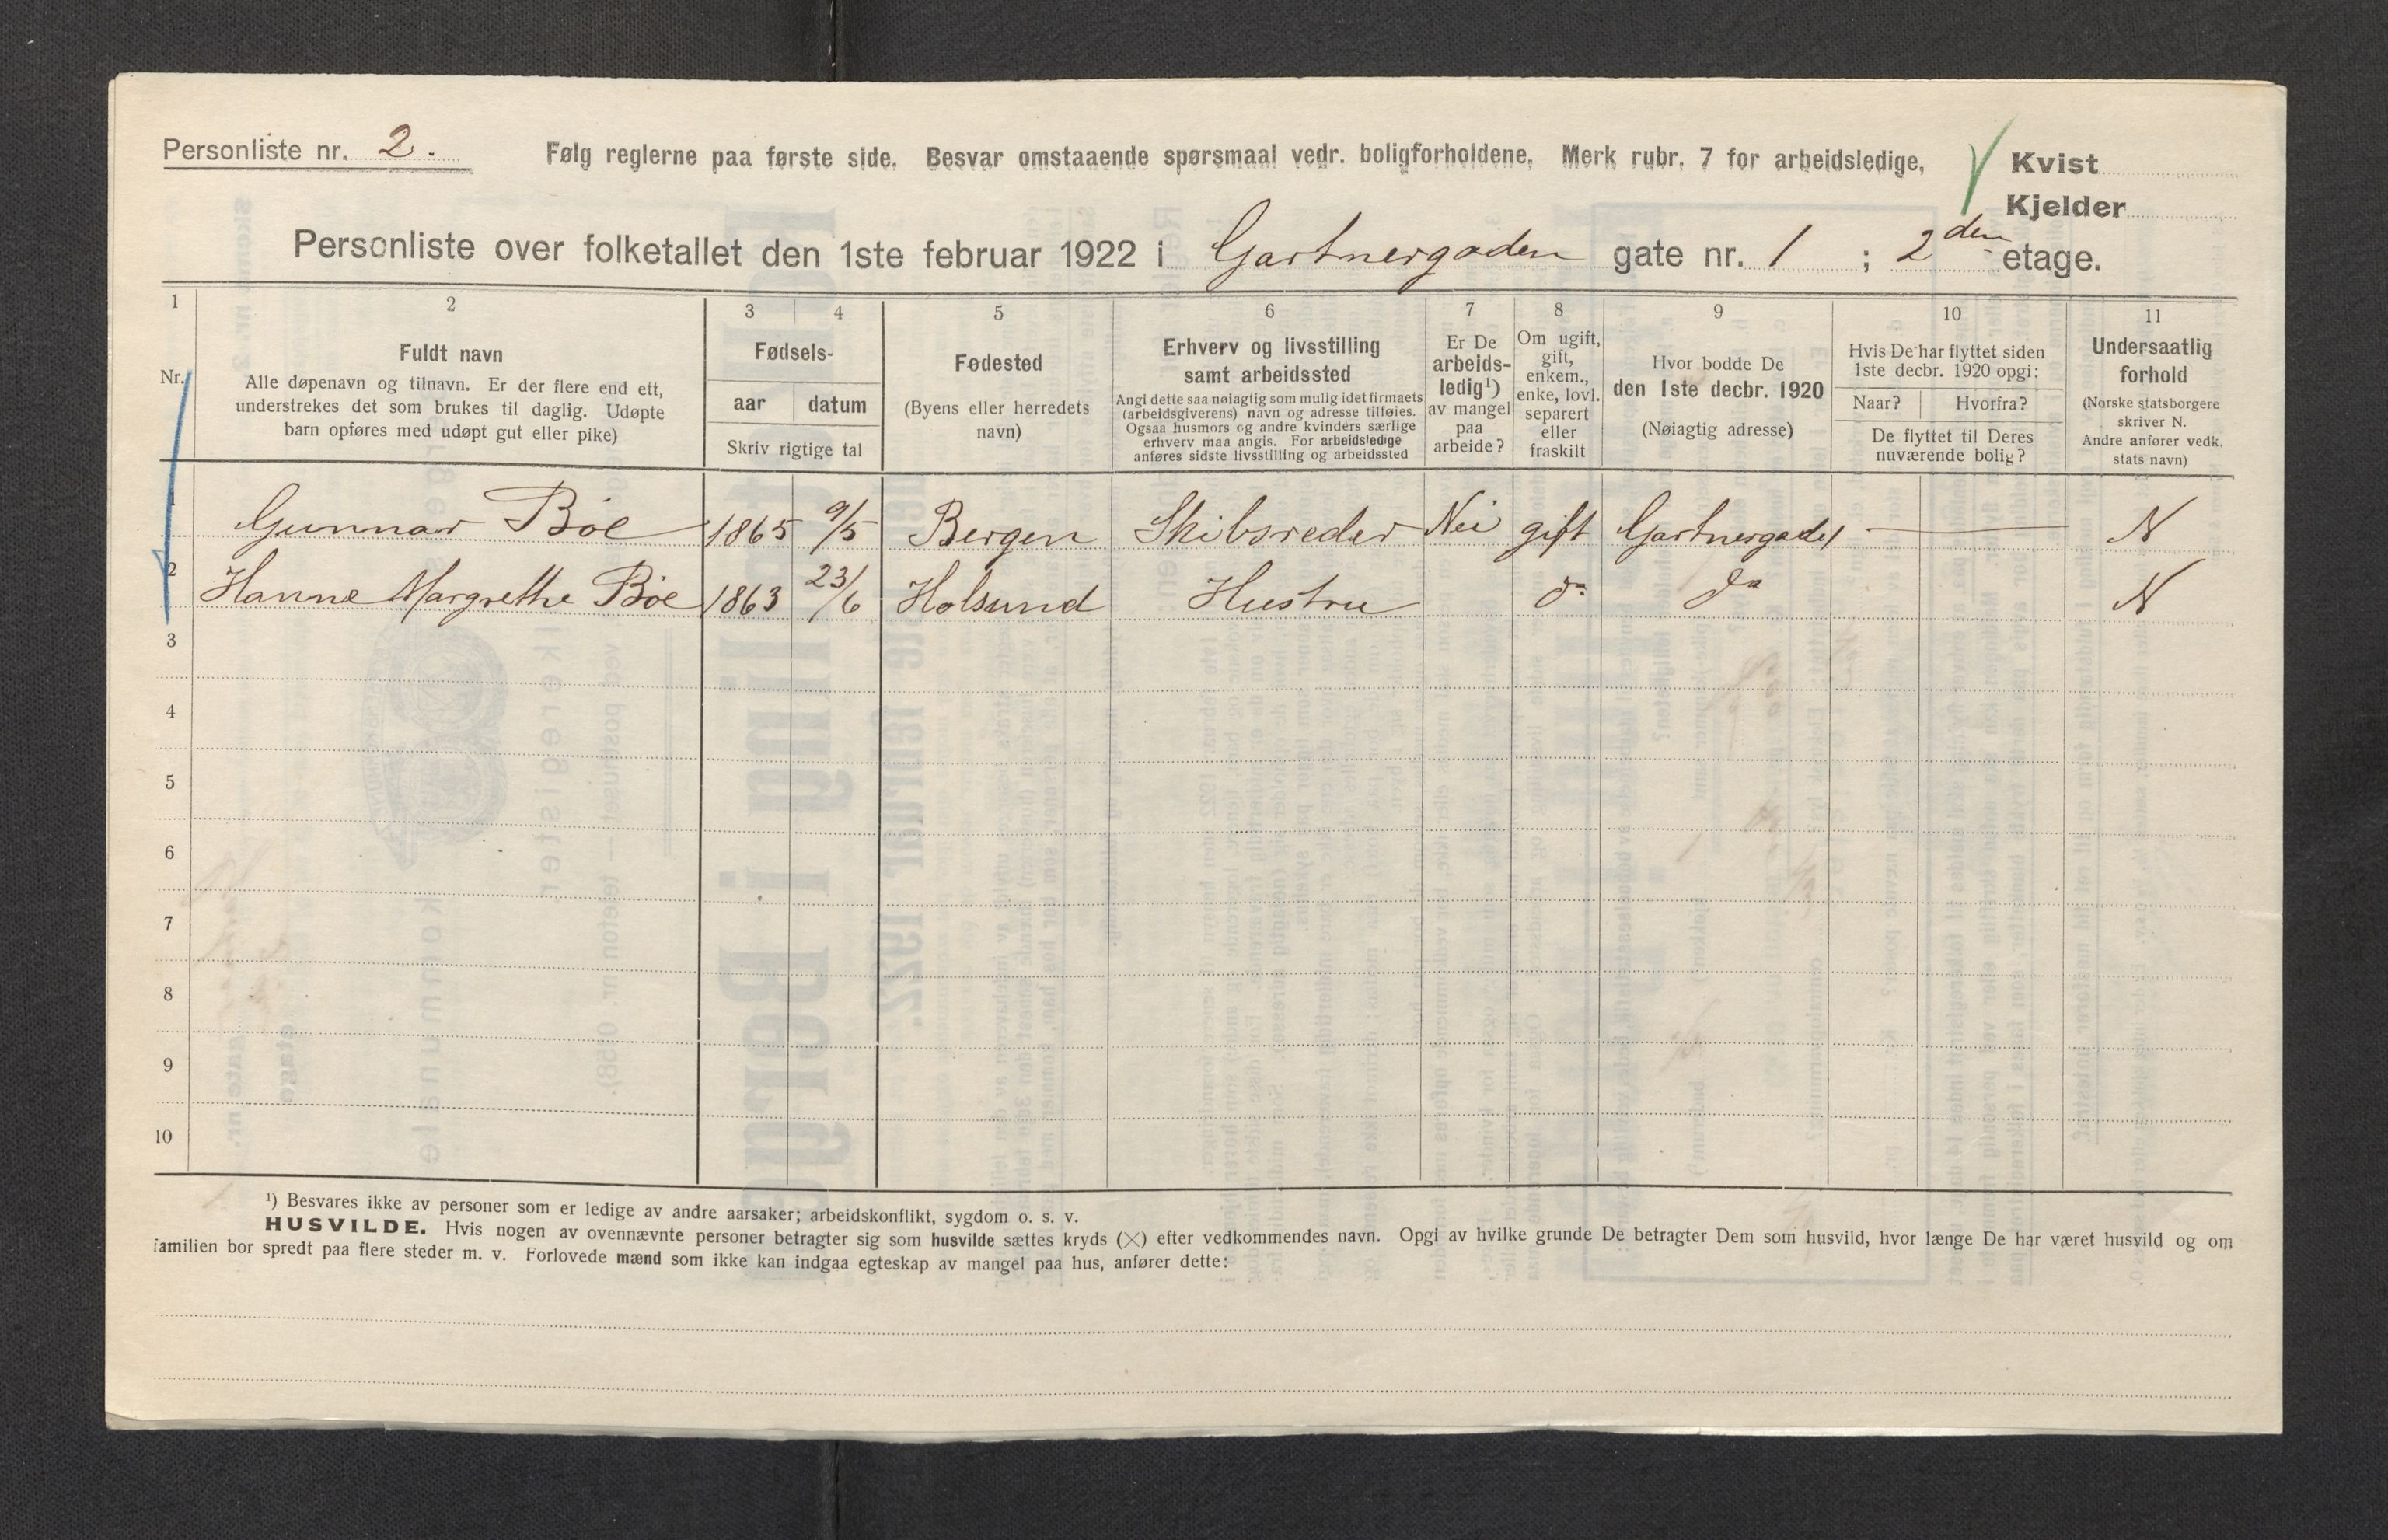 Personliste nr. 2.
Følg reglerne paa første side. Besvar omstaaende spørsmaal vedr. boligforholdene. Merk rubr. 7 for arbeidsledige,
Kvist
Kjelder
Personliste over folketallet den 1ste februar 1922 i Gartnergaden gate nr. 1 ; 2den etage.
1 2 3 4 5 6 7 8 9 10 11
Nr.
Fuldt navn
Alle døpenavn og tilnavn. Er der flere end ett,
understrekes det som brukes til daglig. Udøpte
barn opføres med udøpt gut eller pike)
Fødsels-
aar datum
Skriv rigtige tal
Fødested
(Byens eller herredets
navn)
Erhverv og livsstilling
samt arbeidssted
Angi dette saa nøiagtig som mulig idet firmaets
(arbeidsgiverens) navn og adresse tilføies.
Ogsaa husmors og andre kvinders særlige
erhverv maa angis. For arbeidsledige
anføres sidste livsstilling og arbeidssted
Er De
arbeids-
ledig¹)
av mangel
paa
arbeide?
Om ugift,
gift,
enkem.,
enke, lovl.
separert
eller
fraskilt
Hvor bodde De
den 1ste decbr. 1920
(Nøiagtig adresse)
Hvis De har flyttet siden
1ste decbr. 1920 opgi:
Naar? Hvorfra?
De flyttet til Deres
nuværende bolig?
Undersaatlig
forhold
(Norske statsborgere
skriver N.
Andre anfører vedk.
stats navn)
1 Gunnar Böe 1865 9/5 Bergen Skibsreder Nei gift Gartnergade 1 N
2 Hanne Margrethe Böe 1863 23/6 Holsund Hustru do do N
3
4
5
6
7
8
9
10
¹) Besvares ikke av personer som er ledige av andre aarsaker; arbeidskonflikt, sygdom o. s. v.
HUSVILDE. Hvis nogen av ovennævnte personer betragter sig som husvilde sættes kryds (×) efter vedkommendes navn. Opgi av hvilke grunde De betragter Dem som husvild, hvor længe De har været husvild og om
familien bor spredt paa flere steder m. v. Forlovede mænd som ikke kan indgaa egteskap av mangel paa hus, anfører dette: